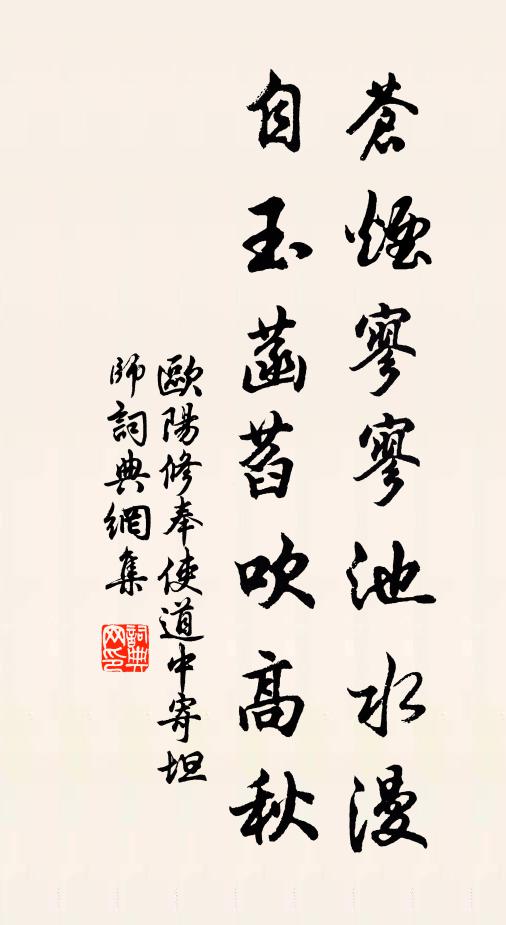 蒼煙寥寥池水漫
自玉菡萏吹高秋
歐陽修奉使道中寄坦
師詞典網集
詞典
网印